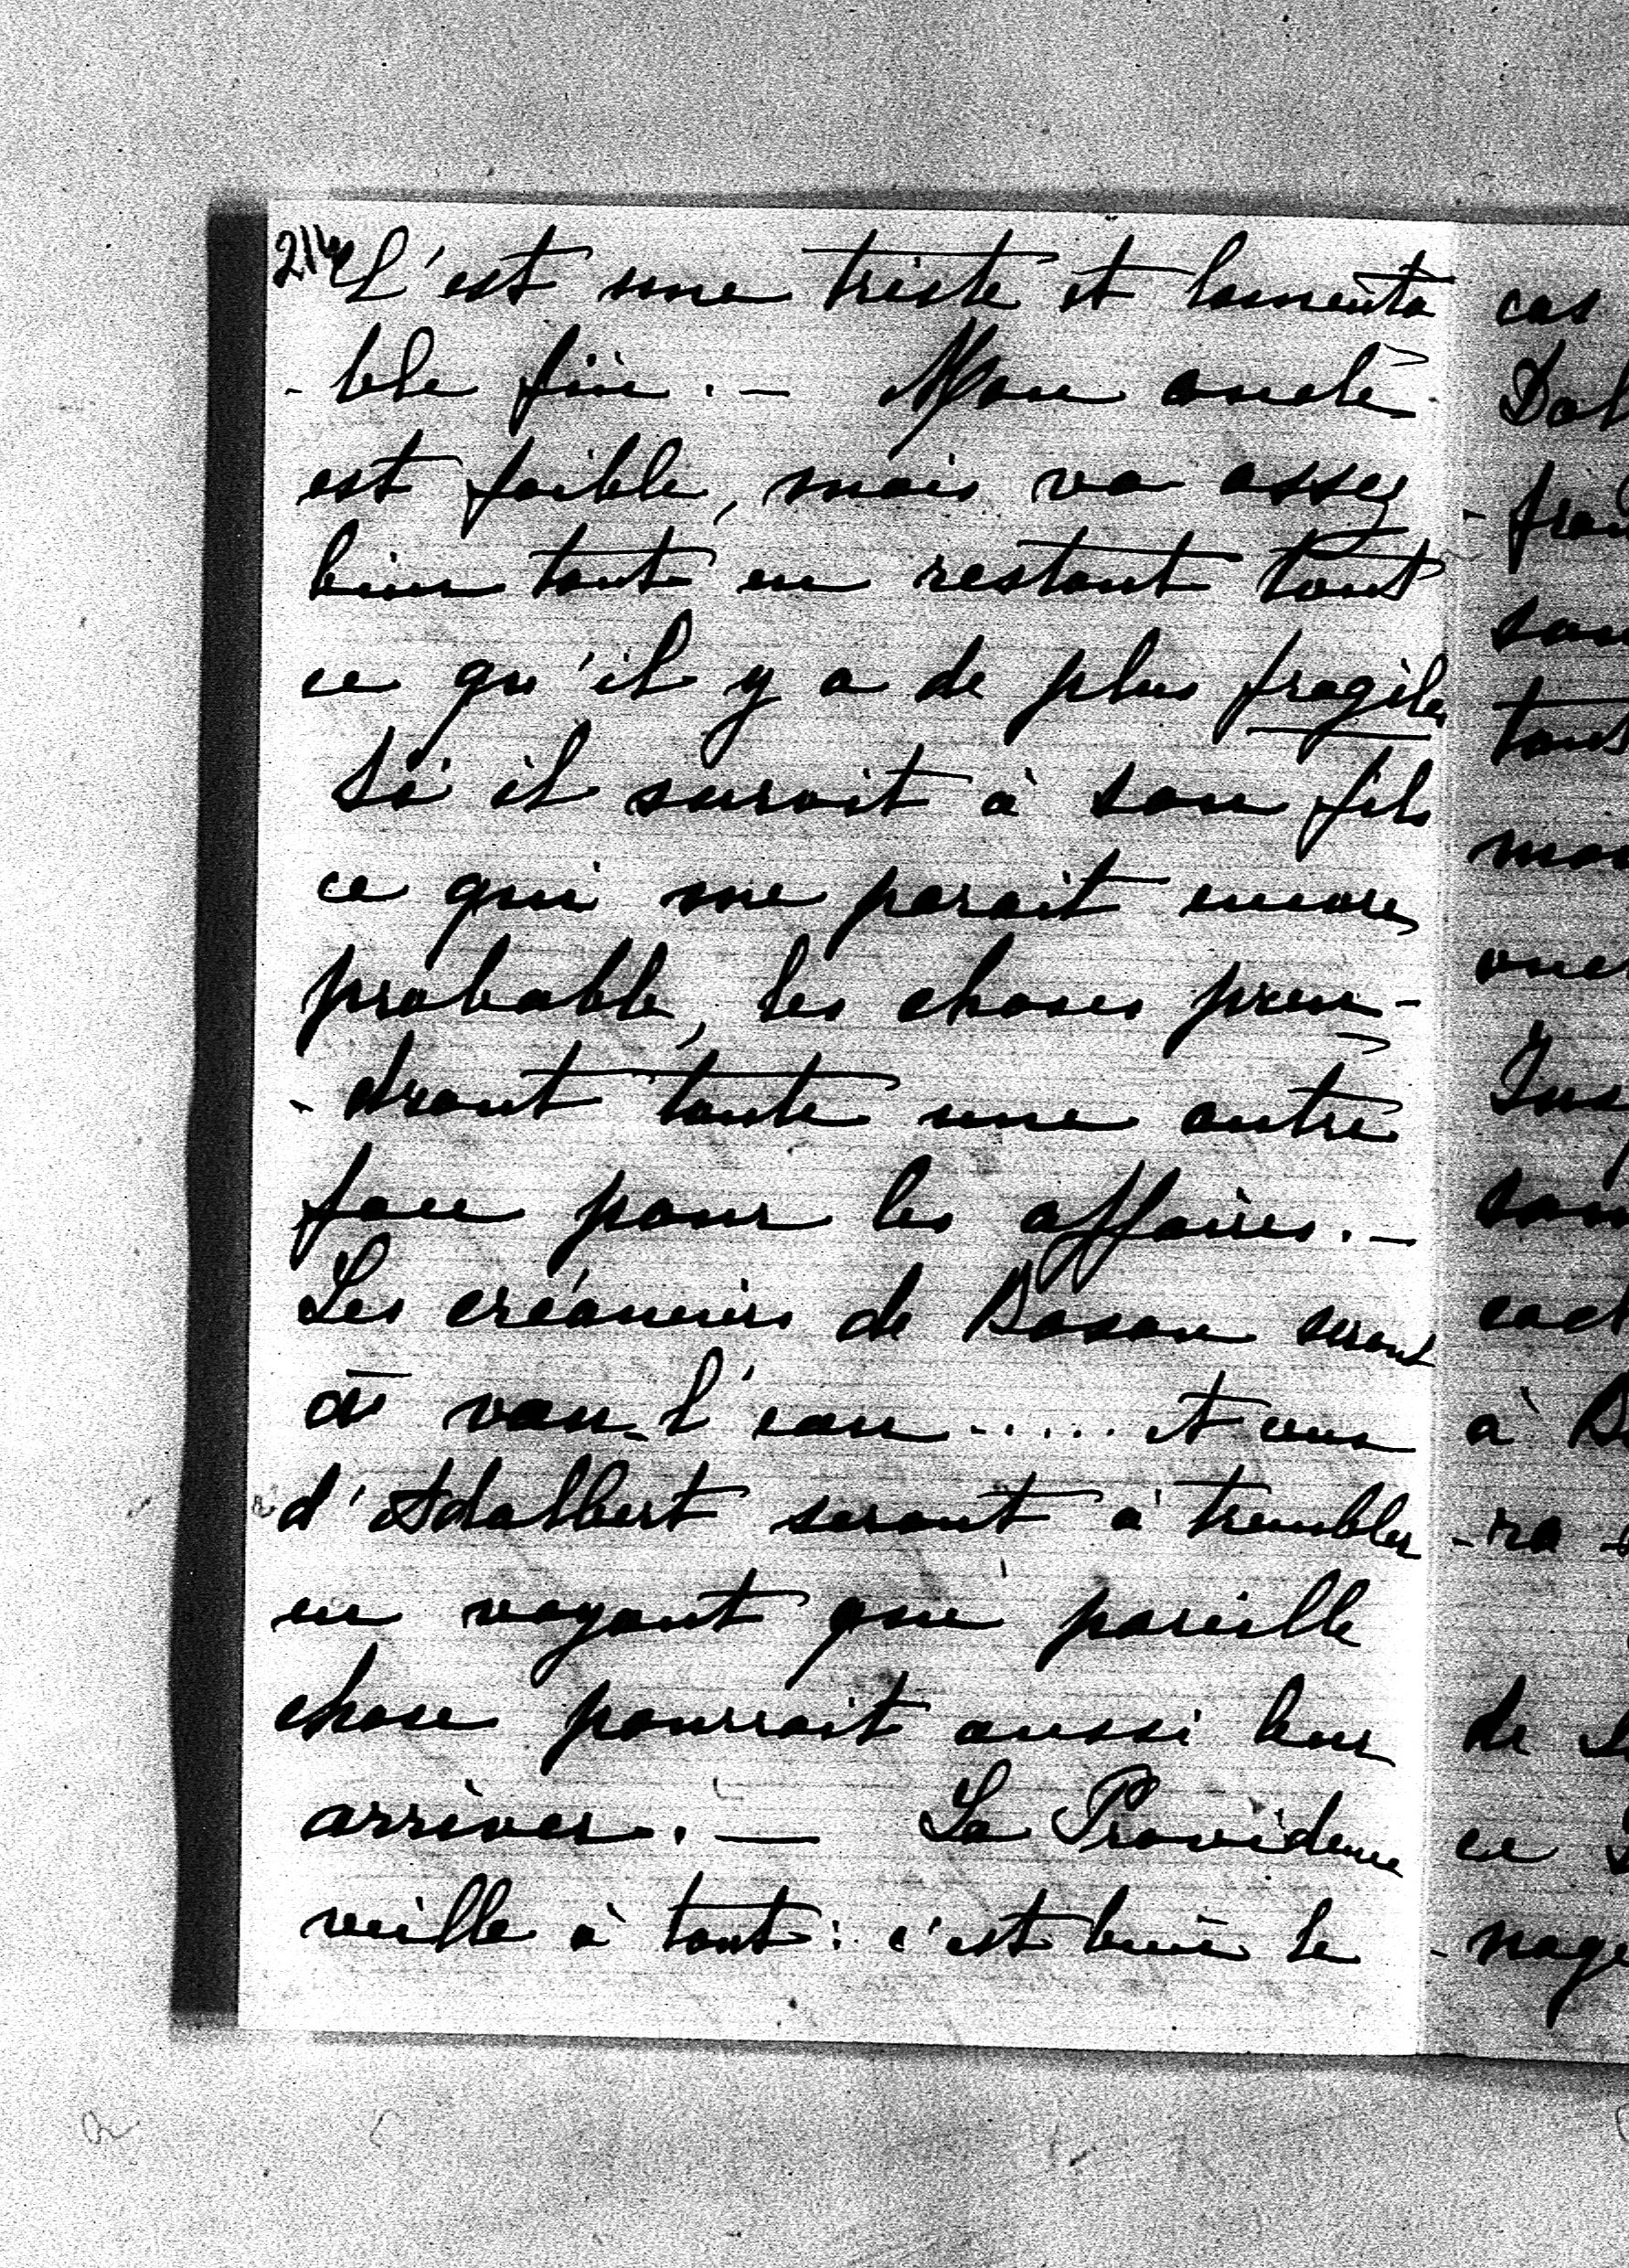 214
C'est une triste et lamenta
- ble fin. — Mon oncle
est faible, mais va assez
bien tout en restant tout
ce qu'il y a de plus fragile
Si il survit à son fils
ce qui me parait encore
probable, les choses pren-
- dront toute une autre
face pour les affaires. —
Les créanciers de Boson seront
à van-l'eau ..... et ceux
d'Adalbert seront à trembler
en voyant que pareille
chose pourrait aussi leur
arriver. — La Providence
veille à tout : c'est bien le
cas
tout
à
de
ce